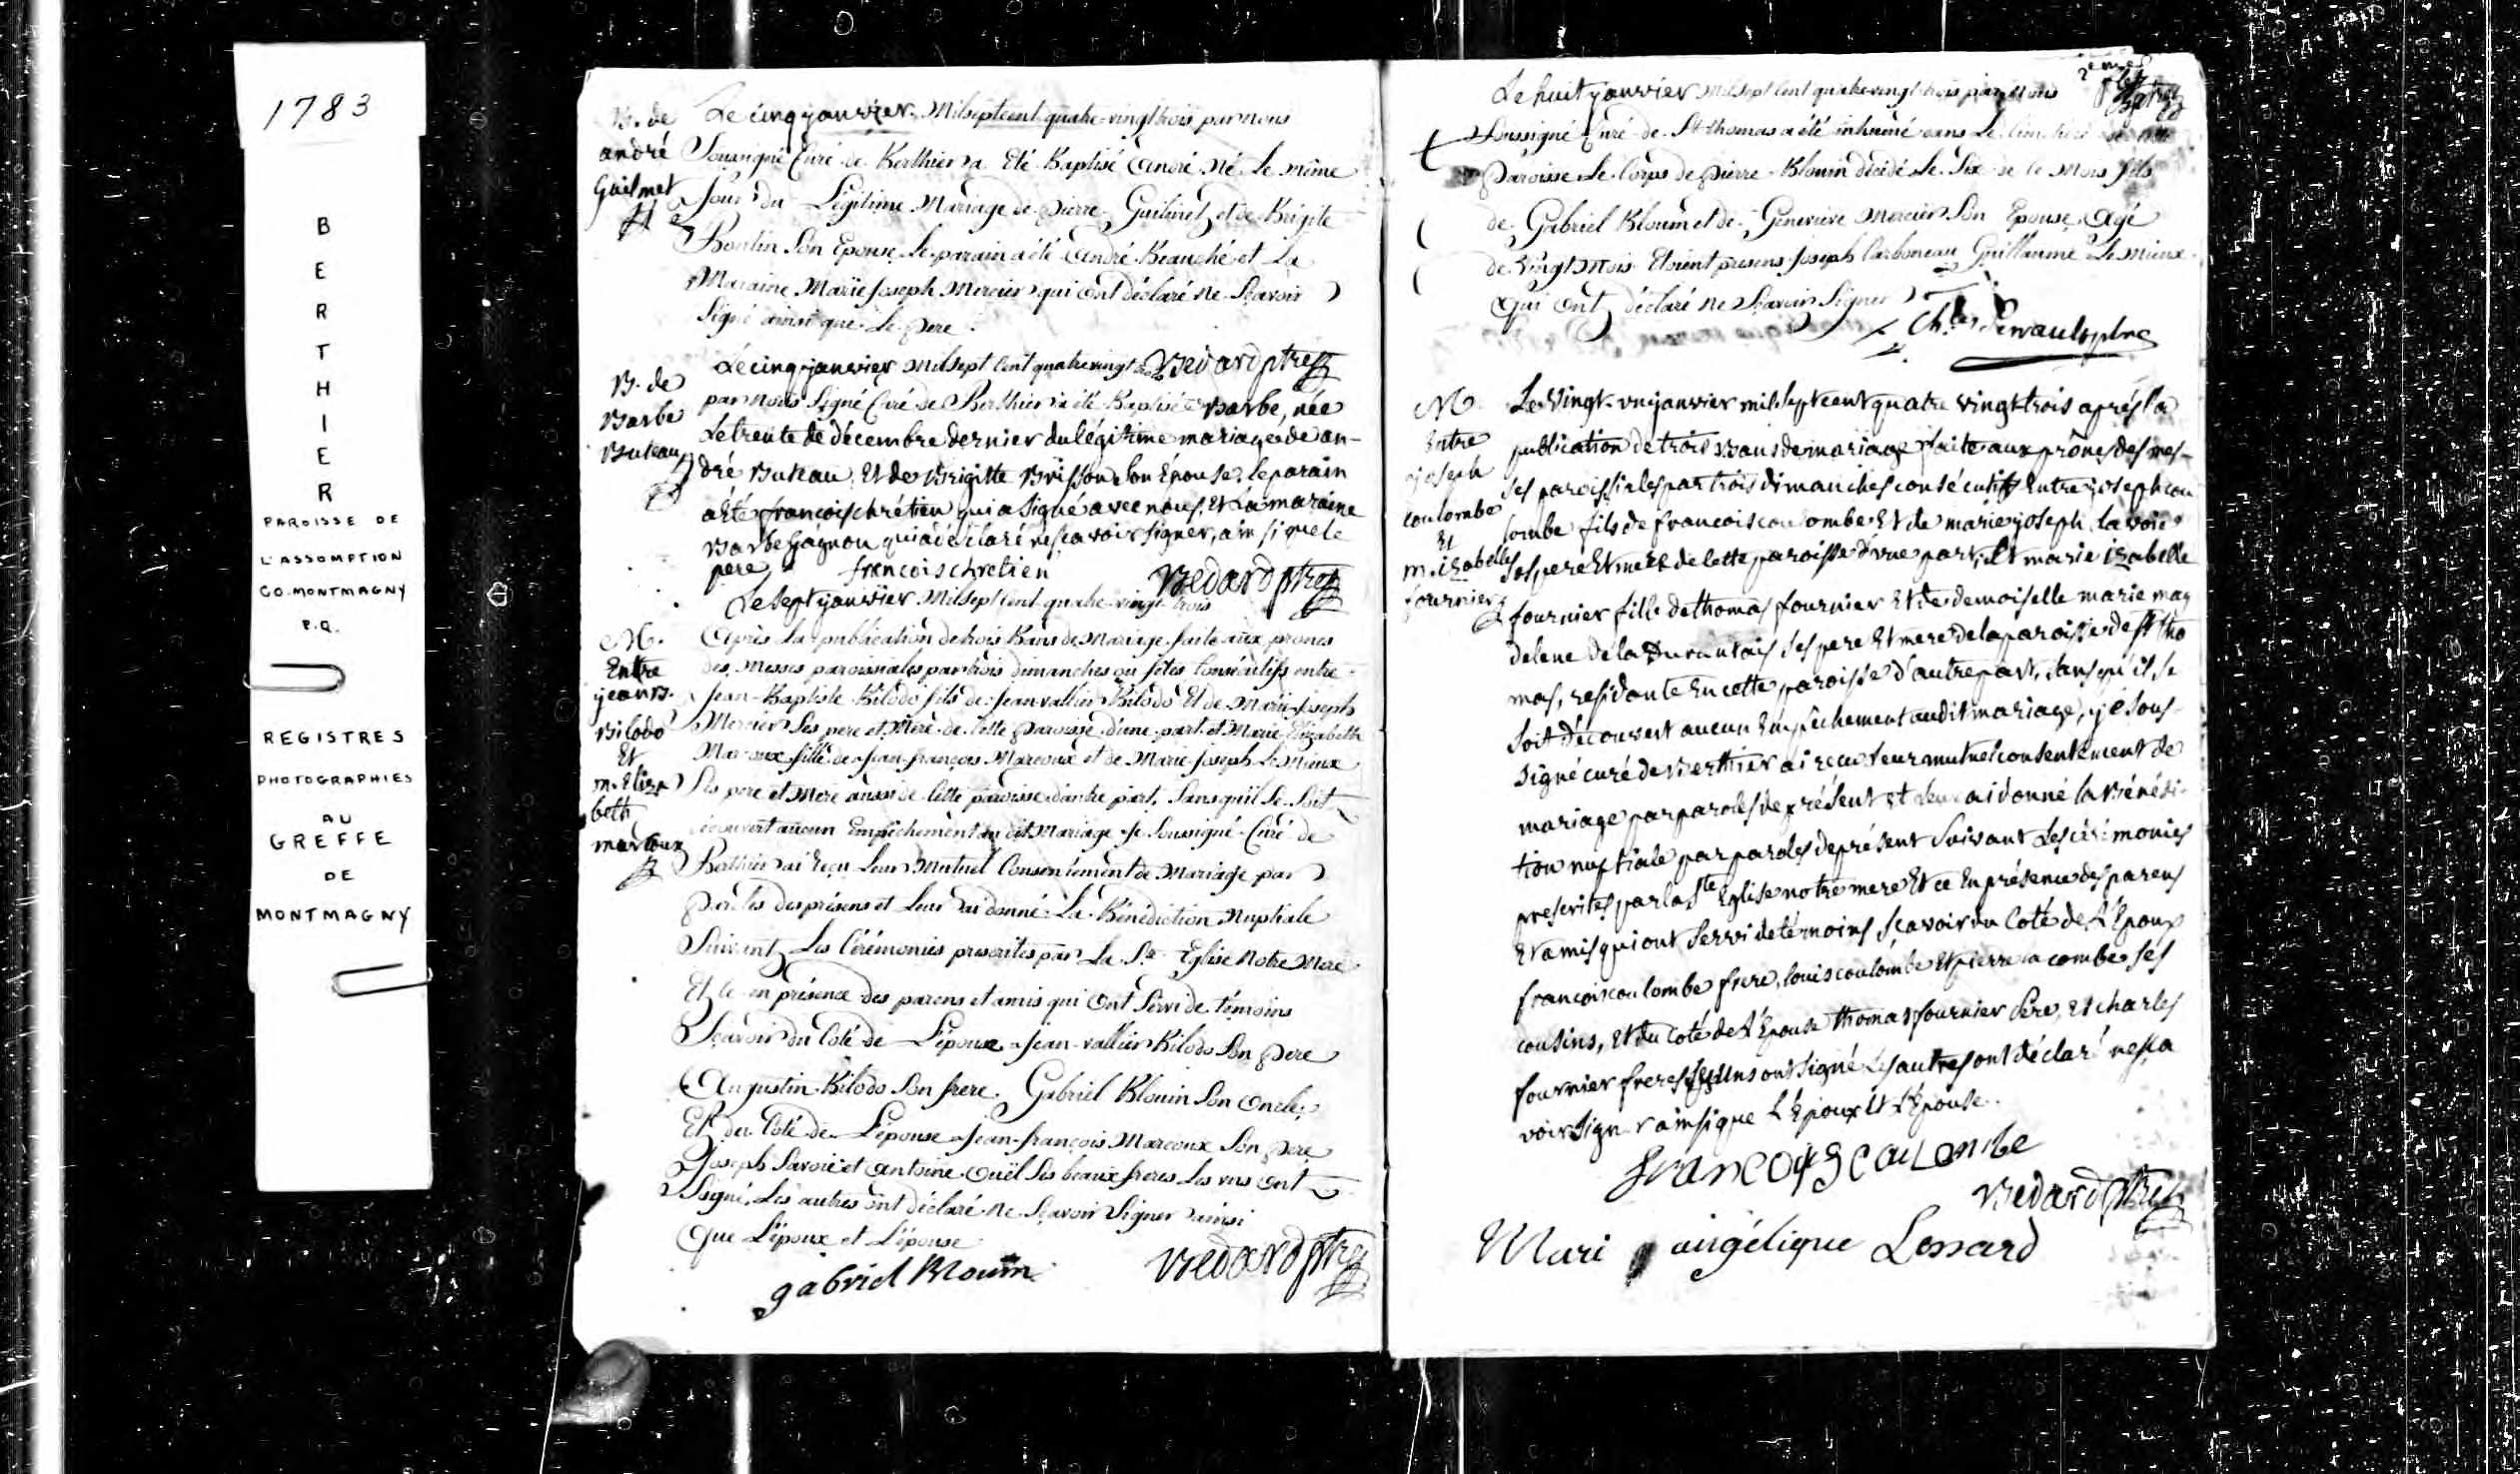 1783
BERTHIER
PAROISSE DE
L'ASSOMPTION
CO. MONTMAGNY
P.Q.
REGISTRES
PHOTOGRAPHIES
AU
GREFFE
DE
MONTMAGNY
B. de
andré
Guilmet
Le cinq janvier Mil sept cent quatre-vingt trois par nous
Soussigné Curé de Berthier a Eté Baptisé André Né Le même
Jour du Légitime Mariage de pierre Guilmet et de Brigite
Boulin Son Epouse Le parain a été André Beauché et La
Maraine Marie Joseph Mercier qui ont déclaré Ne Scavoir
Signé ainsi que Le pere
Bedard ptre
B. de
Barbe
Buteau
Le cinq janvier Mil Sept Cent quatre vingt trois
par nous Signé Curé de Berthier a été Baptisé Barbe, née
Le trente de décembre dernier du légitime mariage de an-
dré Buteau Et de Brigitte Brisson Son Epouse. le parain
a été francois chrétien qui a Signé avec nous, Et La maraine
Barbe Gagnon qui a déclaré ne scavoir signer, ainsi que le
pere
francois chretien
Bedard ptre
M.
Entre
jean B.
Bilodo
Et
m. Eliza
beth
marcoux
Le Sept janvier Mil Sept Cent quatre-vingt-trois
Après La publication de trois Bans de Mariage faite aux prones
des Messes paroissiales par trois dimanches ou fêtes Consécutifs entre
Jean-Baptiste Bilodo fils de Jean-vallier Bilodo Et de Marie-Joseph
Mercier Ses pere et Mere de Cette Paroisse d'une part et Marie Elizabeth
Marcoux fille de Jean-françois Marcoux et de Marie-Joseph LeMieux
Ses pere et Mere aussi de Cette paroisse d'autre part, Sans qu'il Se Soit
découvert aucun Empêchement au dit Mariage Je Soussigné Curé de
Berthier ai reçu Leur Mutuel Consentement de Mariage par
Paroles de présens et Leur ai donné La Bénédiction Nuptiale
Suivant Les Cérémonies prescrites par La Ste Eglise Notre Mere
Et ce en présence des parens et amis qui ont Servi de témoins
Sçavoir du Coté de L'époux Jean-vallier Bilodo Son Pere
Augustin Bilodo Son frere, Gabriel Blouin Son Oncle,
Et du Coté de L'épouse Jean-françois Marcoux Son Pere
Joseph Savoie et Antoine Ouël Ses beaux freres Les uns ont
Signé, Les autres ont déclaré Ne Sçavoir Signer ainsi
Que L'époux et L'épouse
gabriel Blouin
Bedard ptre
Le huit janvier Mil Sept Cent quatre-vingt-trois par Nous
Soussigné Curé de St thomas a été inhumé dans Le Cimetiere de
Paroisse Le Corps de pierre Blouin décédé Le Six de ce Mois fils
de Gabriel Blouin et de Geneviève Mercier Son Epouse Agé
de vingt Mois Etoient presens Joseph Carboneau Guillaume LeMieux
Qui ont déclaré Ne Sçavoir Signer
Ch. Perrault ptre
M.
Entre
joseph
coulombe
Et
m. izabelle
fournier
Le Vingt-un janvier mil Sept cent quatre vingt trois après la
publication de trois Bans de mariage faite aux prônes des mes-
ses paroissiales par trois dimanches consécutifs Entre joseph cou
lombe fils de francois coulombe Et de marie joseph lavoie
Ses pere Et mere de cette paroisse d'une part; Et marie izabelle
fournier fille de thomas fournier Et de demoiselle marie mag
delene de la Durantais ses pere Et mere de la paroisse de St tho
mas, residante En cette paroisse d'autre part, Sans qu'il se
soit découvert aucun Empêchement audit mariage, je sous-
signé curé de Berthier ai recu leur mutuel consentement de
mariage par paroles de présent et leur ai donné la Bénédi-
tion nuptiale par paroles de présent Suivant Les cérémonies
prescrites par la Ste Eglise notre mere Et ce En présence des parens
Et amis qui ont Servi de témoins Scavoir du Coté de L'Epoux
francois coulombe frere, louis coulombe Et pierre lacombe ses
cousins, Et du Coté de L'Epouse thomas fournier Pere, Et charles
fournier frere Les Uns ont signé Les autres ont déclaré ne sça
voir signer ainsi que L'Epoux Et L'Epouse.
francoys coulombe
Bedard ptre
Mari angélique Lessard